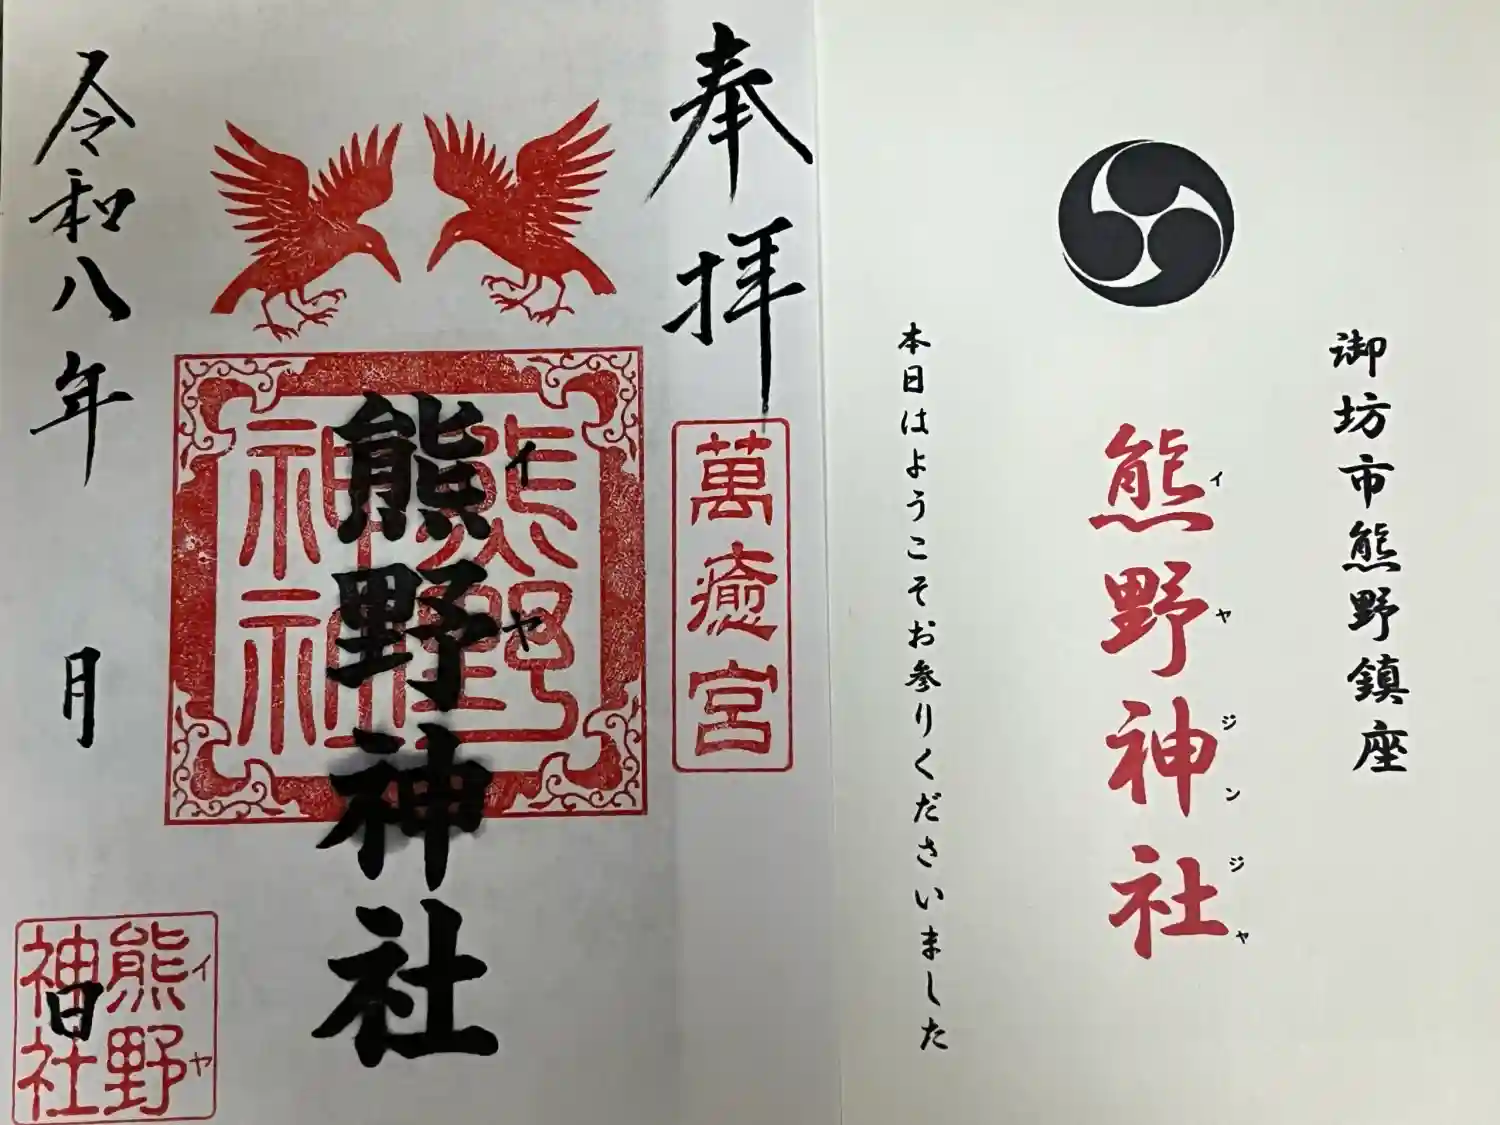 御坊市熊野鎮座
熊野神社
イヤジンジャ
本日はようこそお参りくださいました
奉拝
萬癒宮
熊野神社
イヤ
熊野
神社
令和八年 月 日
熊野
イヤ
神社